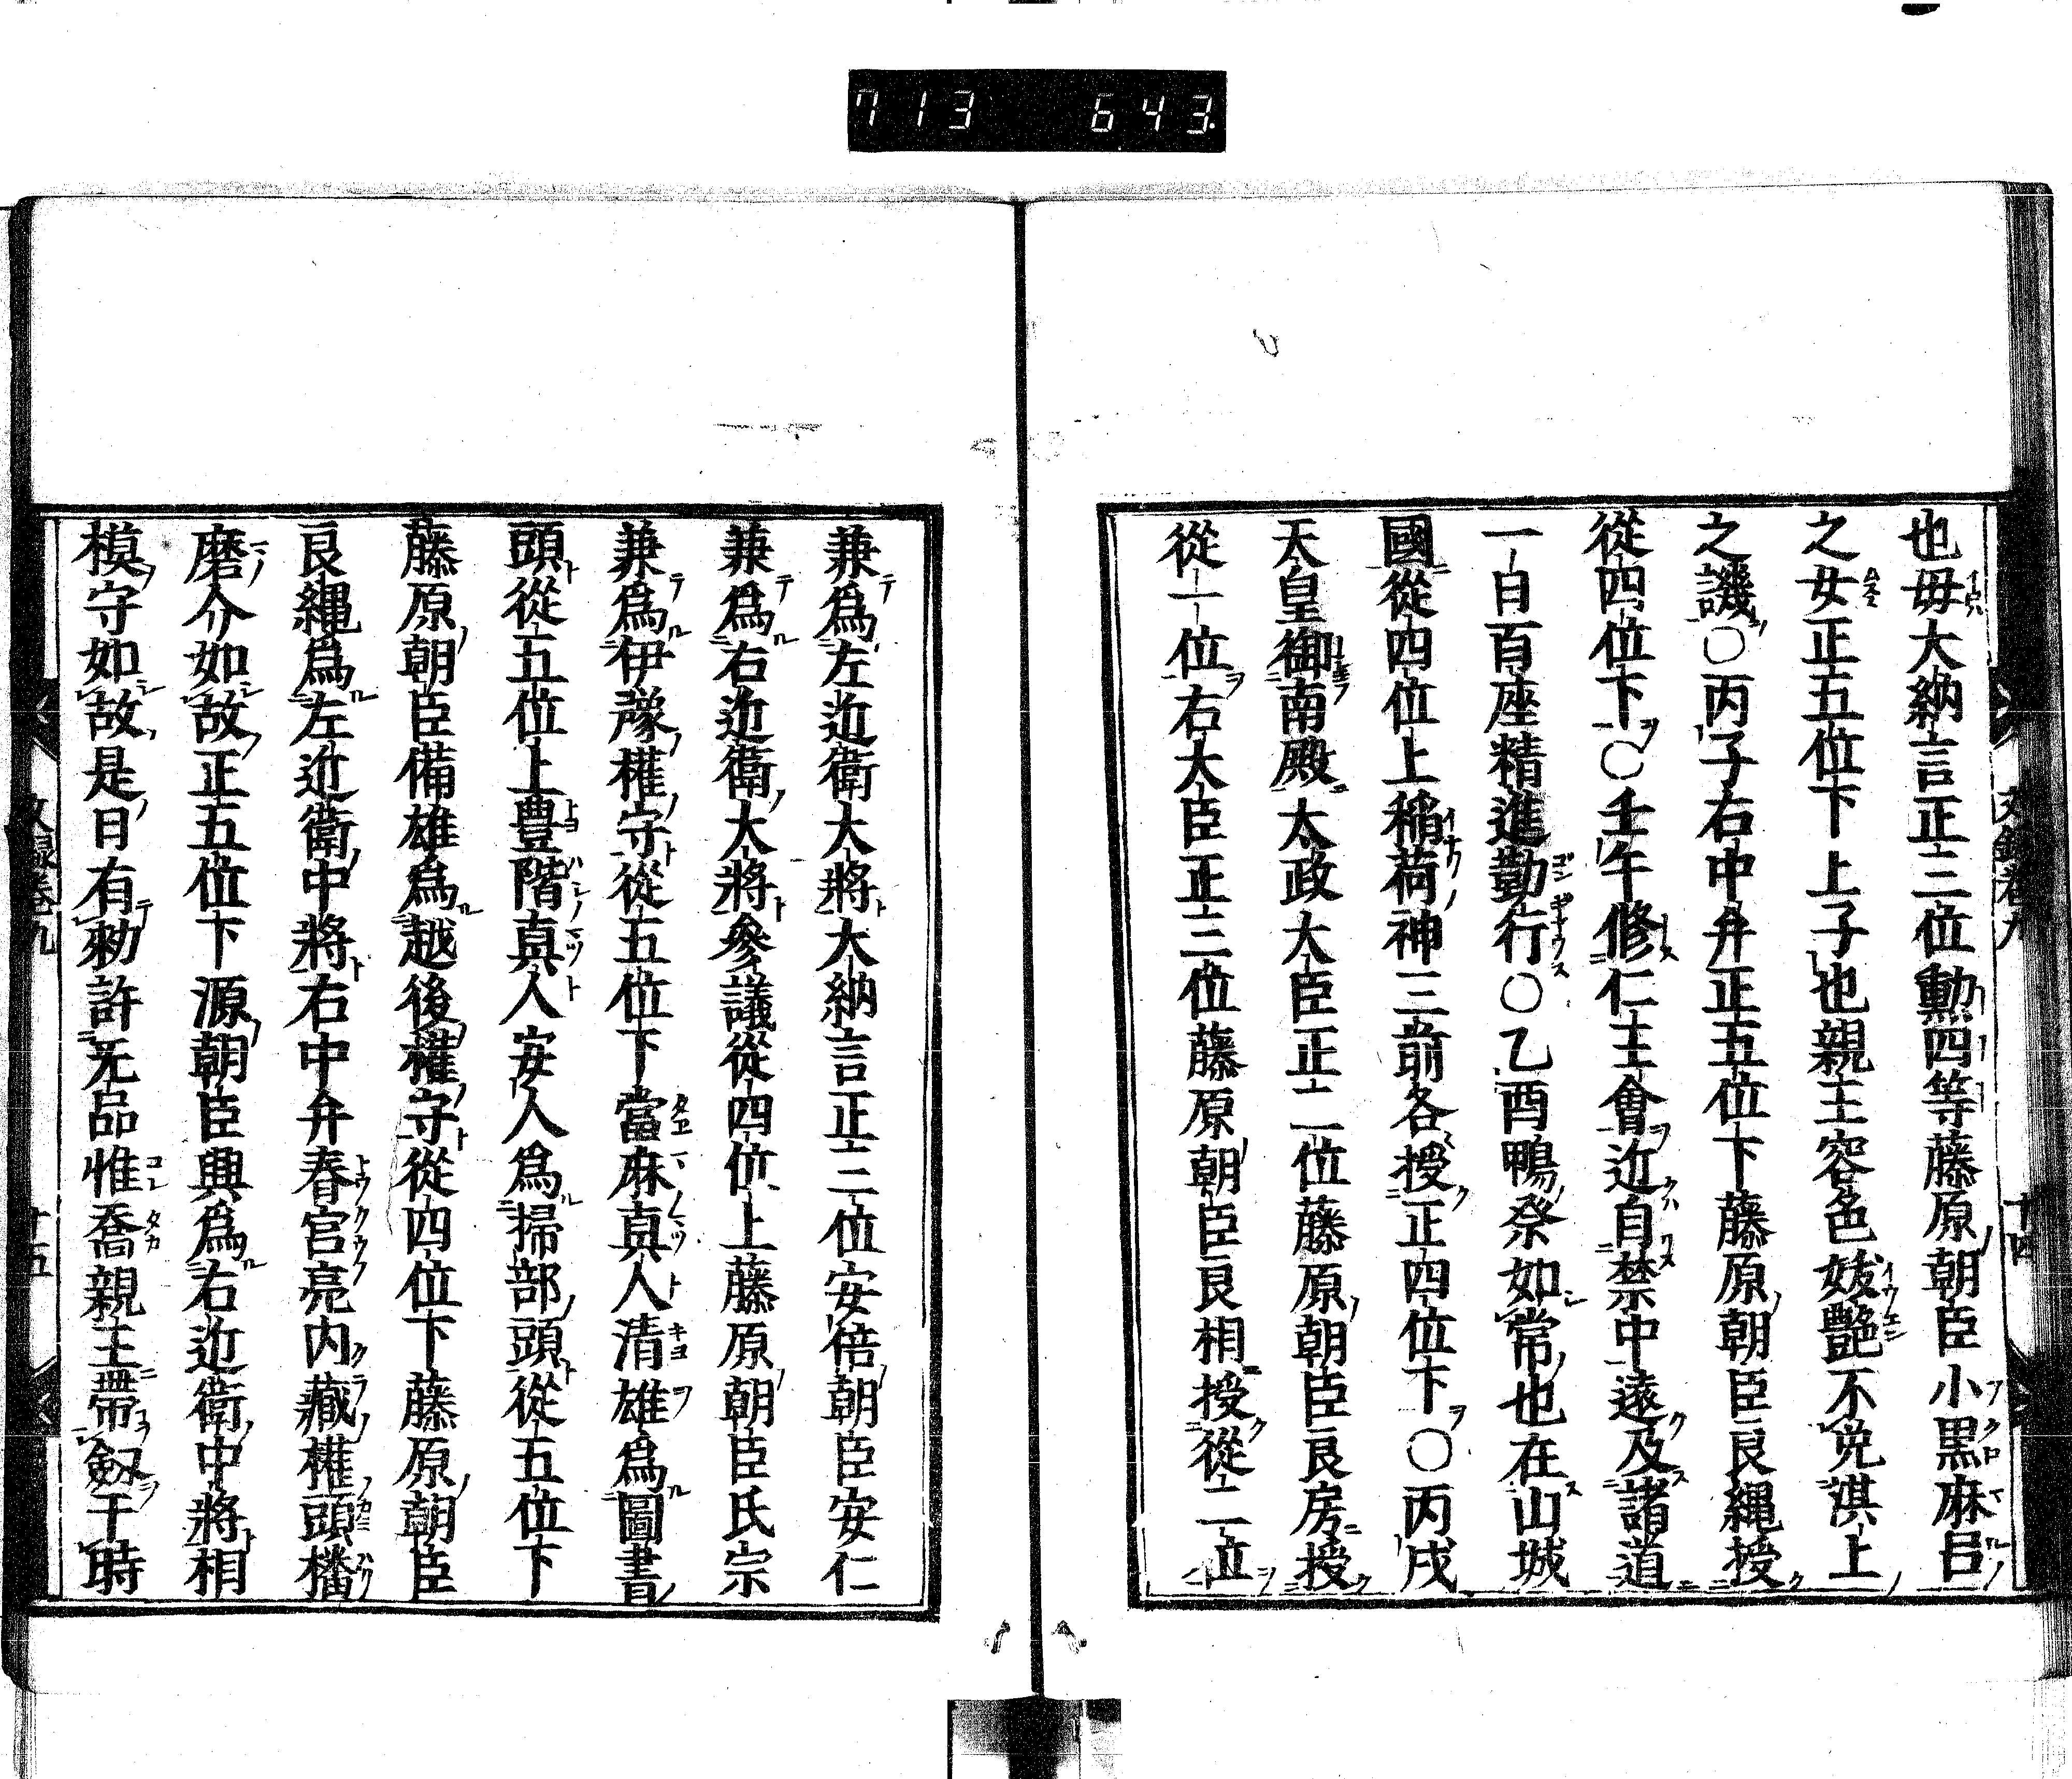 713 643
也毋大納言正三位勲四等藤原朝臣小黒麻呂
之女正五位下上子也親王容色妖艶不免淇上
之譏○丙子右中弁正五位下藤原朝臣良縄授
從四位下○壬午修仁王會近自禁中遠及諸道
一日百座精進勤行○乙酉鴨祭如常也在山城
國從四位上稲荷神三前各授正四位下○丙戌
天皇御南殿太政大臣正二位藤原朝臣良房授
從一位右大臣正三位藤原朝臣良相授從二位
文録巻九 十四
兼為左近衛大將大納言正三位安倍朝臣安仁
兼為右近衛大將參議從四位上藤原朝臣氏宗
兼為伊豫權守從五位下當麻真人清雄為圖書
頭從五位上豊階真人安人為掃部頭從五位下
藤原朝臣備雄為越後權守從四位下藤原朝臣
良縄為左近衛中將右中弁春宮亮内藏權頭播
磨介如故正五位下源朝臣興為右近衛中將相
模守如故是日有勅許无品惟喬親王帯劔于時
文録巻九 十五